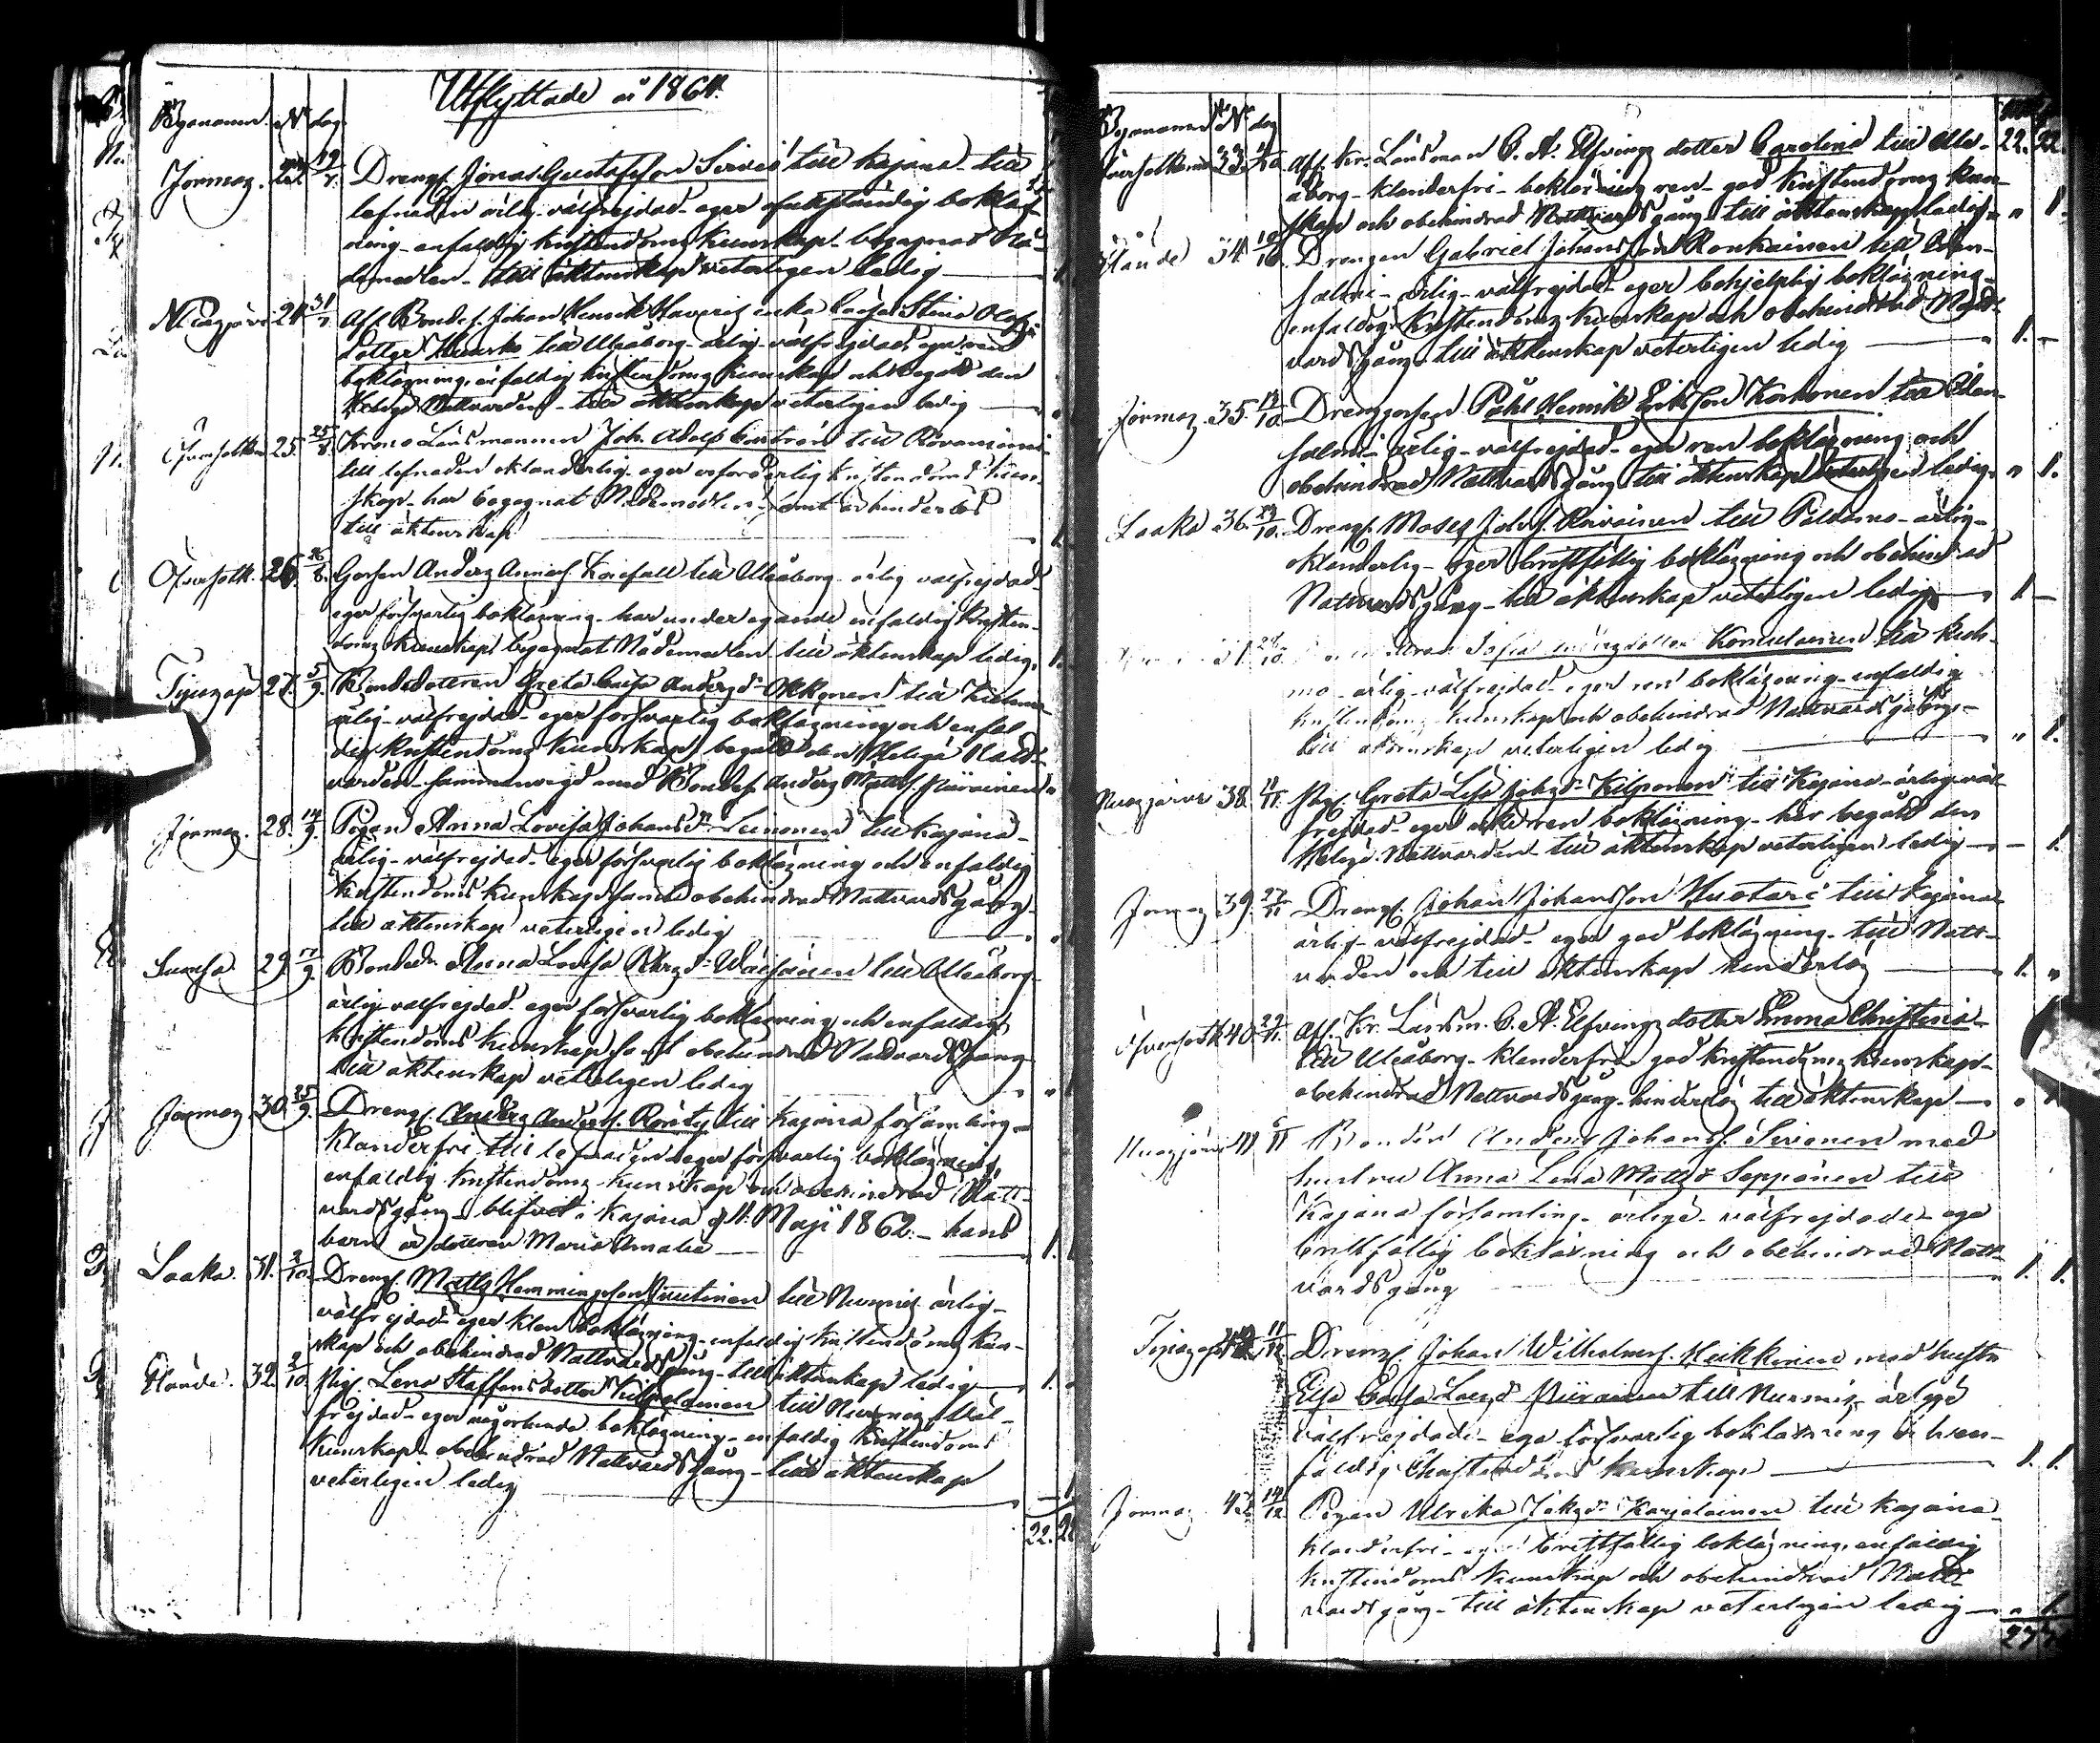 Utflyttade år 1864.
Byanamn. N:o dag.
Jormas. 19 Drengs. Jonas Gustafsson Serviö till Kajana - till
lefnaden ärlig - välfrejdad - eger ofullständig bokläs-
ning - enfaldig kristendoms kunskap - begagnat Nå-
demedlen - till äktenskap veterligen ledig
24. 31 Afl. Bondes. Johan Henrik enka Caisa Stina Olofs
dotter till Uleåborg - ärlig - välfrejdad, eger ren
bokläsning, enfaldig kristendoms kunskap och begått den
Helige Nattvarden - till äktenskap veterligen ledig
25. 25/8. Krono Länsmannen Joh. Adolf Castrén till Rovaniemi -
till lefnaden oklanderlig - eger erforderlig kristendoms kun-
skap - har begagnat Nådemedlen - samt är hinderlös
till äktenskap
26. 26/8. Gossen Anders Korefall till Uleåborg - ärlig välfrejdad
eger försvarlig bokläsning - har under egande enfaldig kristen-
doms kunskap begagnat Nådemedlen - till äktenskap ledig
27. 5/9. Bondedottren Greta Caisa Andersd:r Okkonen till
ärlig - välfrejdad - eger försvarlig bokläsning och enfal
dig kristendoms kunskap, begått den Helige Natt-
varden - sammanvigd med Bondes. Anders Matts. Piirainen
Jormas. 28. 14/9. Pigan Anna Lovisa Johansd:r Leinonen till Kajana -
ärlig - välfrejdad - eger försvarlig bokläsning och enfaldig
kristendoms kunskap samt obehindrad Nattvardsgång -
till äktenskap veterligen ledig
29. 17/9. Bonded:r Anna Lovisa till Uleåborg -
ärlig - välfrejdad - eger försvarlig bokläsning och enfaldig
kristendoms kunskap samt obehindrad Nattvardsgång
till äktenskap veterligen ledig
Jormas. 30. 25/9. Drengs. Anders Anders. till Kajana församling -
klanderfri till lefnaden - eger försvarlig bokläsning
enfaldig kristendoms kunskap och obehindrad Natt-
vardsgång - blifvit i Kajana d. Maji 1862 - hans
barn är dottren Maria Amalia
Laaka. 31. 3/10. Drengs. Matts Hemmingsson till Nurmis ärlig -
välfrejdad - eger klen bokläsning - enfaldig kristendoms kun-
skap och obehindrad Nattvardsgång - till äktenskap ledig
32. 9/10 Pig. Lena Staffansdotter till Nurmes - väl-
frejdad - eger någorlunda bokläsning - enfaldig kristendoms
kunskap - obehindrad Nattvardsgång - till äktenskap
veterligen ledig
22.
Byanamn N:o dag
22. 22.
33. Afl. Kr. Länsman C. A. Elfvings dotter Carolina till Ule-
åborg - klanderfri - bokläsning ren - god kristendoms kun-
skap och obehindrad Nattvardsgång - till äktenskap ledig 1.
34. Drengen Gabriel Johansson Ronkainen till Iden-
salmi - ärlig - välfrejdad - eger behjelplig bokläsning -
enfaldig kristendoms kunskap och obehindrad Natt-
vardsgång - till äktenskap veterligen ledig 1. -
Jormas 35 13/10. Drenggossen Påhl Henrik Eriksson Korhonen till Iden-
salmi - ärlig - välfrejdad - eger ren bokläsning och
obehindrad Nattvardsgång - till äktenskap veterligen ledig 1.
Laaka 36. 29/10. Drengs. Moses Johs. till Paldamo - ärlig -
oklanderlig - eger bristfällig bokläsning och obehindrad
Nattvardsgång - till äktenskap veterligen ledig 1 -
Sofia till Kuh-
mo - ärlig - välfrejdad - eger ren bokläsning - enfaldig
kristendoms kunskap och obehindrad Nattvardsgång -
till äktenskap veterligen ledig 1.
38. Pig. Greta Lisa Johsd:r Kilponen till Kajana - ärlig - väl-
frejdad - eger bokläsning - har begått den
Helige Nattvarden - till äktenskap veterligen ledig - 1.
Jormas 39. 27/11 Drengs. Johan Johansson Huotari till Kajana
ärlig - välfrejdad - eger god bokläsning - till Natt-
varden och till äktenskap hinderlös 1.
40. 29/11. Afl. Kr. Länsm. C. A. Elfvings dotter Emma Christina -
till Uleåborg - klanderfri - god kristendoms kunskap -
obehindrad Nattvardsgång - hinderlös till äktenskap
41 Bonden Anders Johans. Sirenen med
hustru Anna Lena Mattsd:r Seppänen till
Kajana församling - ärlige - välfrejdade - ega
bristfällig bokläsning och obehindrad Natt-
vardsgång 1. 1.
11/12. Drengs. Johan Wilhelms. Heikkinen med hustru
Elsa Caisa Larsd:r Piirainen till Nurmis - ärlige
välfrejdade - ega försvarlig bokläsning och en-
faldig Christendoms kunskap 1. 1.
Jormas 43. 14/12 Pigan Ulrika Karjalainen till Kajana
klanderfri - eger bristfällig bokläsning, enfaldig
kristendoms kunskap och obehindrad Natt-
vardsgång - till äktenskap veterligen ledig 1
27